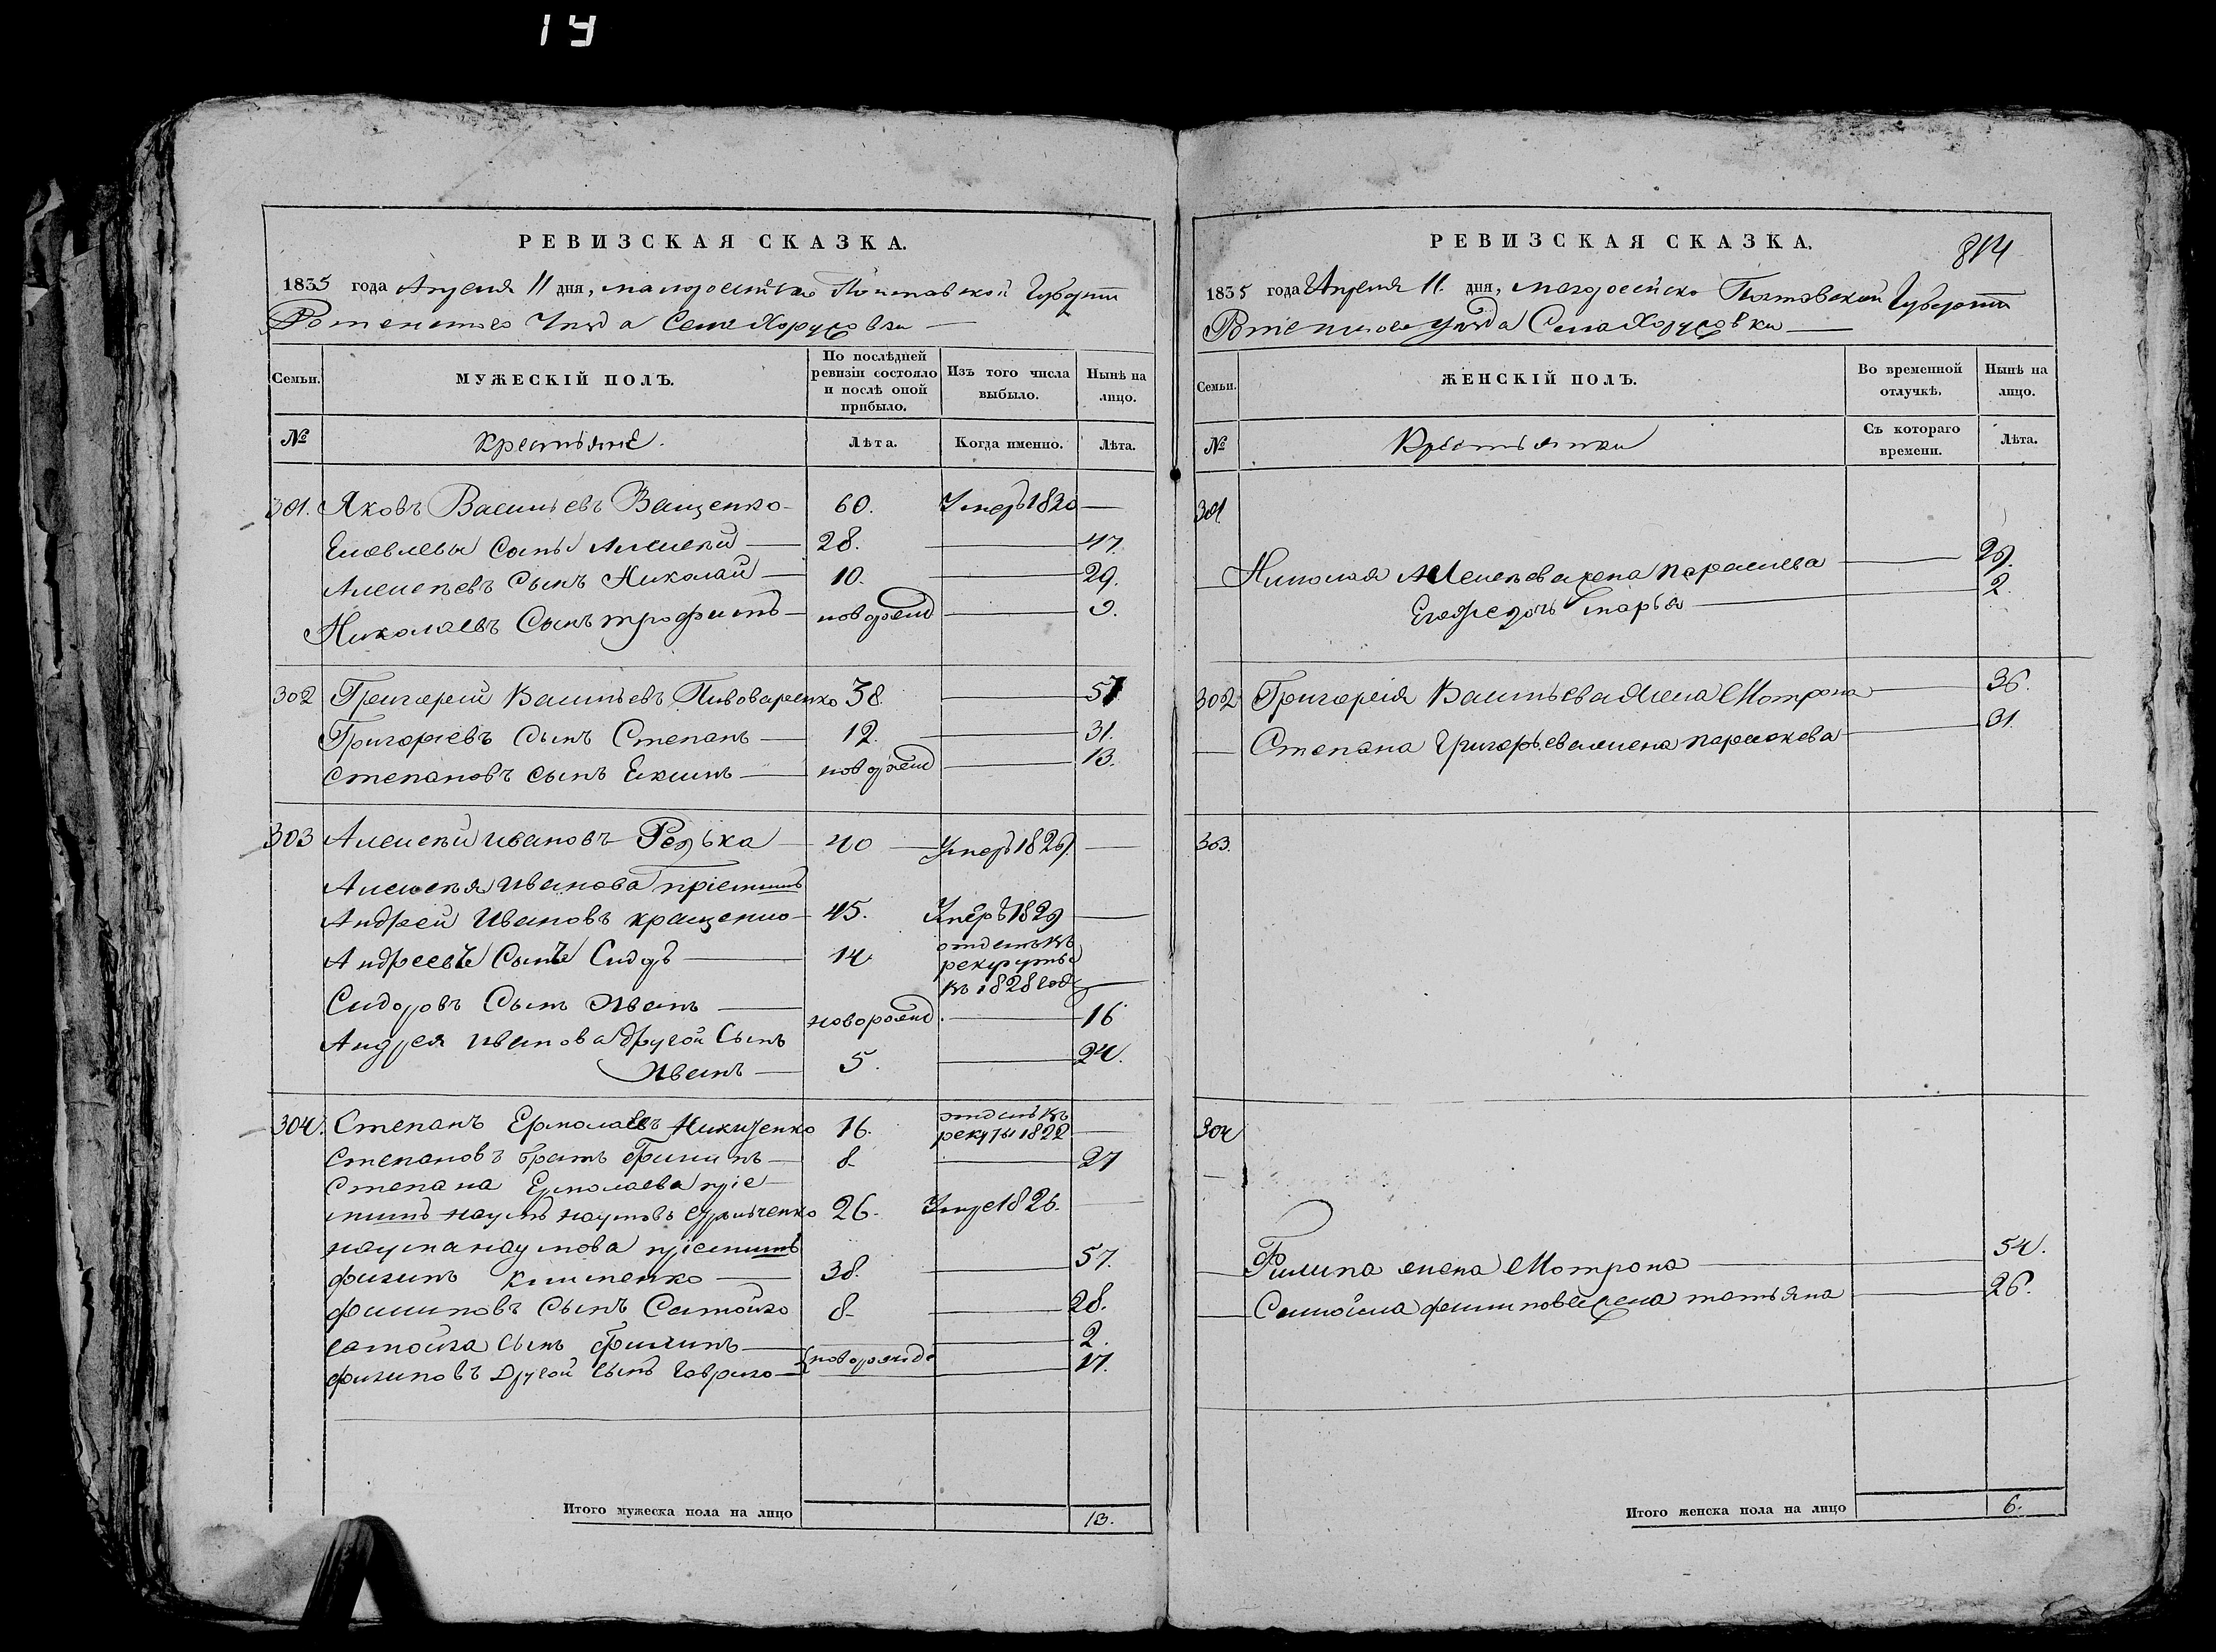 19
РЕВИЗСКАЯ СКАЗКА.
1835 года Апреля 11 дня, малороссійско Полтавской Губерніи
Роменского Уезда Села Хоружовки
Семьи.
МУЖЕСКІЙ ПОЛЪ.
По послѣдней ревизіи состояло и послѣ оной прибыло.
Изъ того числа выбыло.
Нынѣ на лицо.
№
Крестьяне.
Лѣта.
Когда именно.
Лѣта.
301. Яковъ Васильевъ Ващенко 60. Умеръ 1820
Яковлевы Сынъ Алексѣй 28. 47
Алексѣевъ Сынъ Николай 10. 29.
Николаевъ Сынъ трофимъ новорожд 9.
302 Григорей Васильевъ Пивоваренко 38. 57
Григорьевъ Сынъ Степанъ 12. 31.
Степановъ сынъ Екимъ новорожд 13.
303 Алексѣй ивановъ Редька 40 Умеръ 1829.
Алексѣя Иванова пріемышъ
Андрей Ивановъ кращенко 45. Умеръ 1829
Андреевъ Сынъ Сидръ 14 отданъ въ рекруты въ 1828 году
Сидоровъ Сынъ Иванъ новорожд. 16
Андрея иванова другой Сынъ
Иванъ 5. 24.
304. Степанъ Ермолаевъ Никитенко 16. отданъ въ рекруты 1822
Степановъ братъ Филипъ 8. 27
Степана Ермолаева пріе
мышъ наумъ наумовъ 26. Умре 1826.
наума наумова пріемышъ
филипъ Клименко 38. 57.
филиповъ Сынъ Самойло 8. 28.
самойла Сынъ Филипъ 2.
филиповъ Другой Сынъ Гаврило новорожде 17.
Итого мужеска пола на лицо 13.
РЕВИЗСКАЯ СКАЗКА.
814
1835 года Апреля 11. дня, малоросійско Полтавской Губерніи
Роменского уезда Села Хоружовки
Семьи.
ЖЕНСКІЙ ПОЛЪ.
Во временной отлучкѣ,
Нынѣ на лицо.
№
Крестьянки
Съ котораго времени.
Лѣта.
301
Николая Алексѣева жена Парасковѣа 29.
Егоже дочь Марья 2.
302 Григорія Васильева жена Мотрона 36.
Степана Григорьева жена парасковѣа 31.
303.
304
Филипа жена Мотрона 54.
Самойла филипова жена татьяна 26.
Итого женска пола на лицо 6.